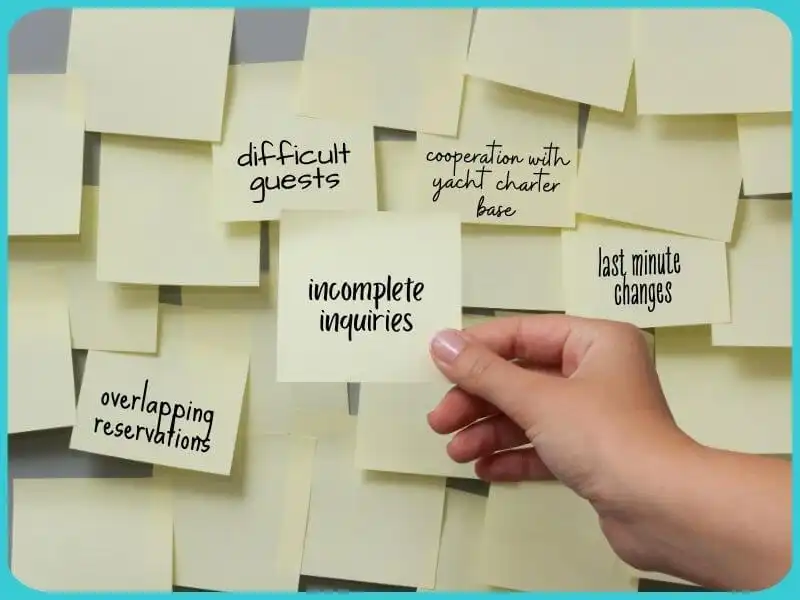 difficult
guests
cooperation with
yacht charter
base
incomplete
inquiries
last minute
changes
overlapping
reservations